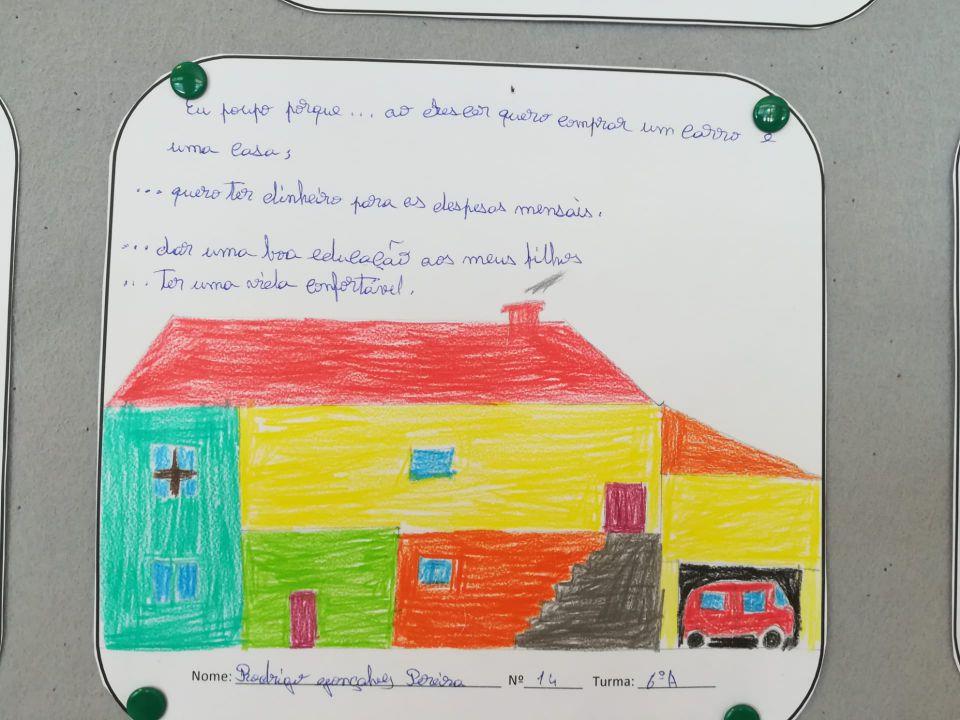 Eu poupo porque... ao crescer quero comprar um carro e
uma casa;
... quero ter dinheiro para as despesas mensais.
... dar uma boa educação aos meus filhos
... Ter uma vida confortável.
Nome: Rodrigo gonçalves Pereira Nº 14 Turma: 6ºA